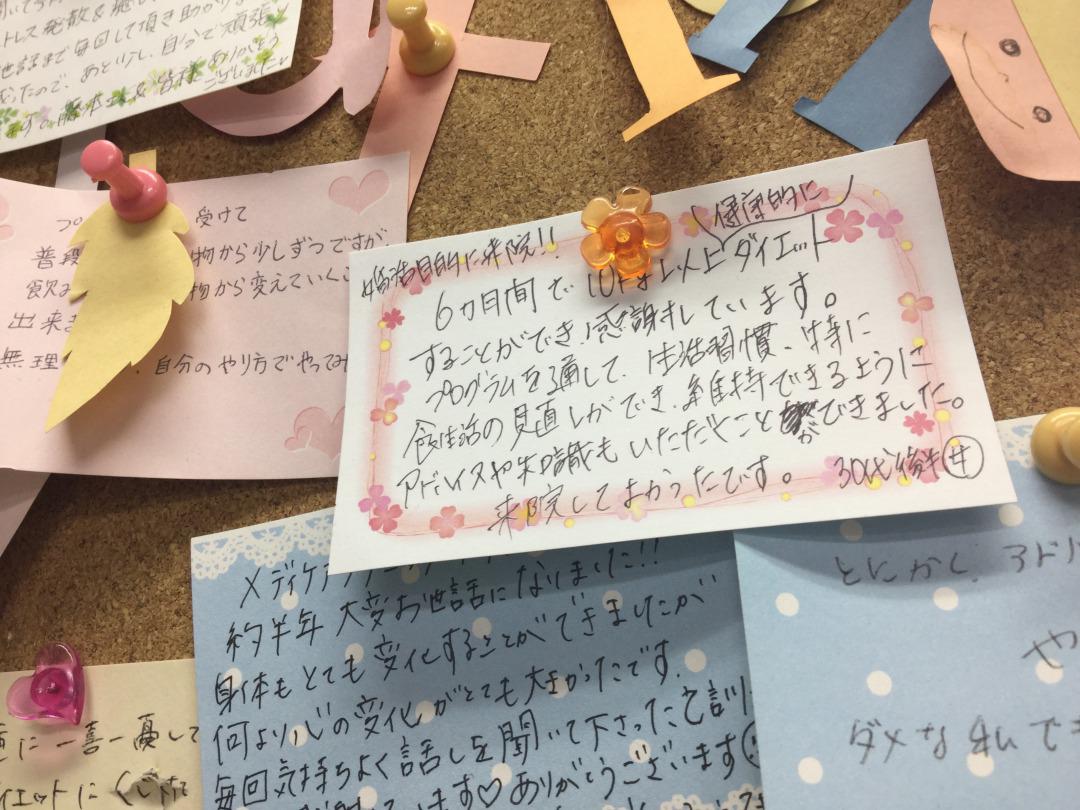 トレス発散&
世話まで毎回して頂き助かり
ったので、あと少し、自分で頑張り
ます。藤本さん&皆様ありがとう
ございました
受けて
普段 物から少しずつですが、
飲み 物から変えていくこ
出来ま
無理 、自分のやり方でやってみ
婚活目的に来院!!
健康的に
6カ月間で、10kg以上ダイエット
することができ、感謝しています。
プログラムを通して、生活習慣、特に
食生活の見直しができ、維持できるように
アドバイスや知識もいただくことができました。
来院してよかったです。
30代後半 女
メディケアクリニック
約半年 大変お世話になりました!!
身体もとても変化することができましたが
何より心の変化がとても大きかったです。
毎回気持ちよく話しを聞いて下さった
います♡ありがとうございます
とにかく、3ド
や
ダメな私でも
に一喜一憂して
イエットに